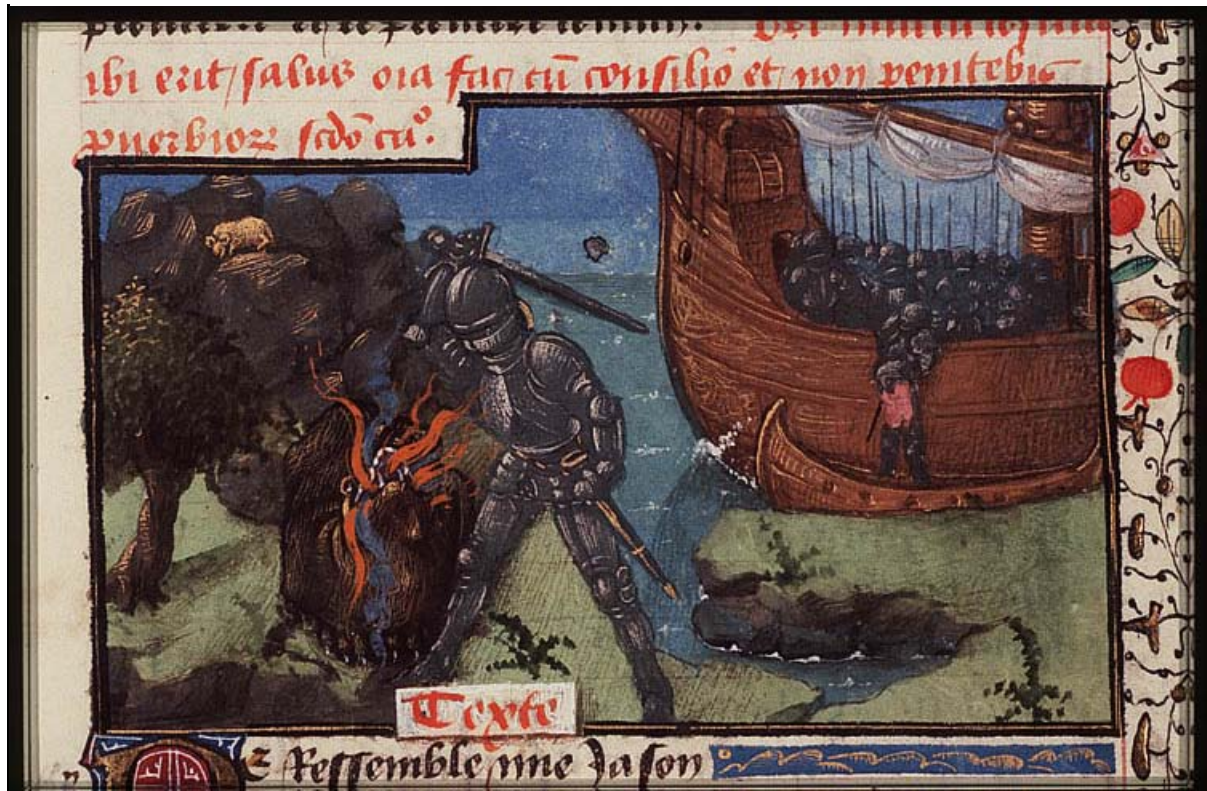 ibi erit / salus oīa fac cū consilio et non penitebis
puerbiorꝝ scdō ca°.
Texte
Ne Ressemble mie Jason